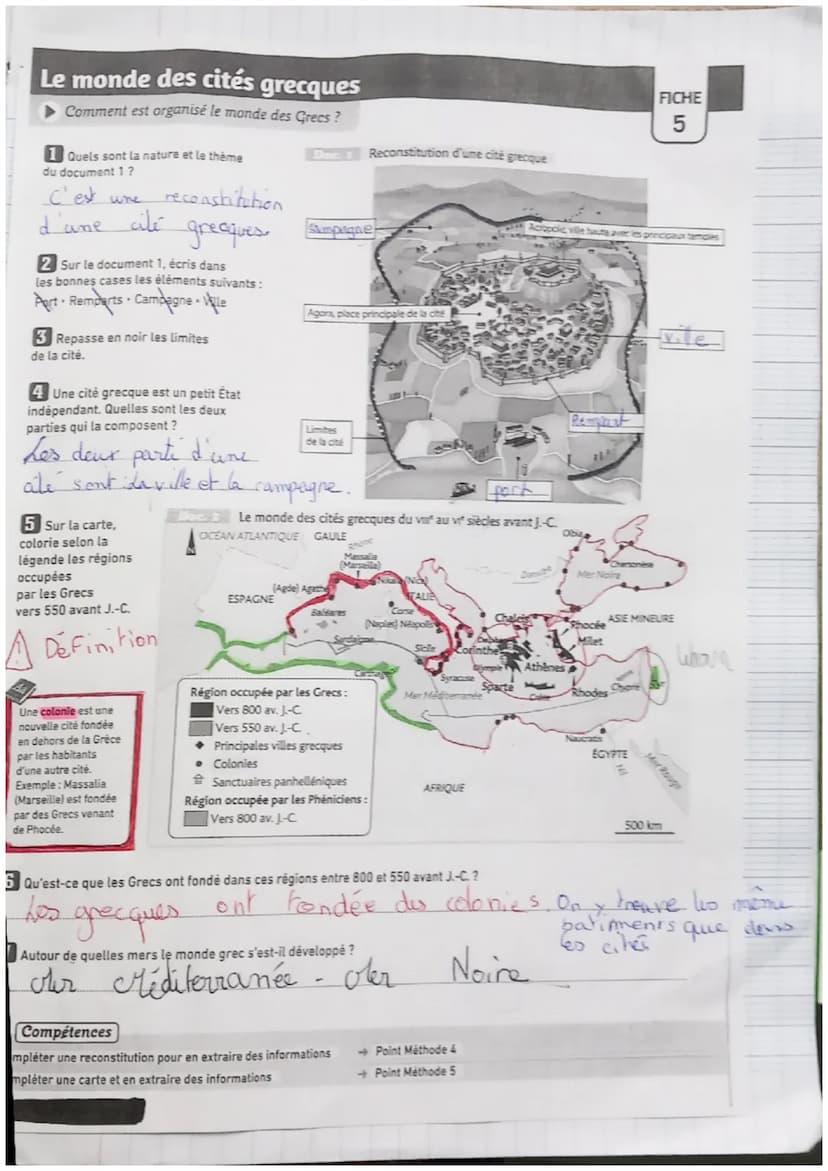 Le monde des cités grecques
Comment est organisé le monde des Grecs ?
FICHE
5
1 Quels sont la nature et le thème
du document 1 ?
C'est une reconstitution
d'une cité grecques
2 Sur le document 1, écris dans
les bonnes cases les éléments suivants :
Port • Remparts • Campagne • Ville
3 Repasse en noir les limites
de la cité.
4 Une cité grecque est un petit État
indépendant. Quelles sont les deux
parties qui la composent ?
Les deux parti d'une
cité sont la ville et la campagne.
Doc. 1 Reconstitution d'une cité grecque
campagne
Acropole, ville haute avec les principaux temples
Agora, place principale de la cité
ville
Rempart
Limites
de la cité
port
5 Sur la carte,
colorie selon la
légende les régions
occupées
par les Grecs
vers 550 avant J.-C.
Définition
Une colonie est une
nouvelle cité fondée
en dehors de la Grèce
par les habitants
d'une autre cité.
Exemple : Massalia
(Marseille) est fondée
par des Grecs venant
de Phocée.
Doc. 2 Le monde des cités grecques du VIIIe au VIe siècles avant J.-C.
N
OCÉAN ATLANTIQUE
GAULE
Rhône
Olbia
Massalia
(Marseille)
Chersonèse
Danube
Mer Noire
(Agde) Agathé
Nikaia (Nice)
ITALIE
ESPAGNE
Corse
Baléares
(Naples) Néapolis
Chalcis
Phocée
ASIE MINEURE
Sardaigne
Sicile
Corinthe
Milet
Liban
Carthage
Olympie
Athènes
Syracuse
Sparte
Rhodes
Chypre
Tyr
Mer Méditerranée
Naucratis
ÉGYPTE
Nil
Mer Rouge
AFRIQUE
500 km
Région occupée par les Grecs :
Vers 800 av. J.-C.
Vers 550 av. J.-C.
Principales villes grecques
Colonies
Sanctuaires panhelléniques
Région occupée par les Phéniciens :
Vers 800 av. J.-C.
6 Qu'est-ce que les Grecs ont fondé dans ces régions entre 800 et 550 avant J.-C. ?
Les grecques ont fondée des colonies. On y trouve les même
batiments que dans
les cités
Autour de quelles mers le monde grec s'est-il développé ?
Mer Méditerranée - Mer Noire
Compétences
mpléter une reconstitution pour en extraire des informations → Point Méthode 4
mpléter une carte et en extraire des informations → Point Méthode 5